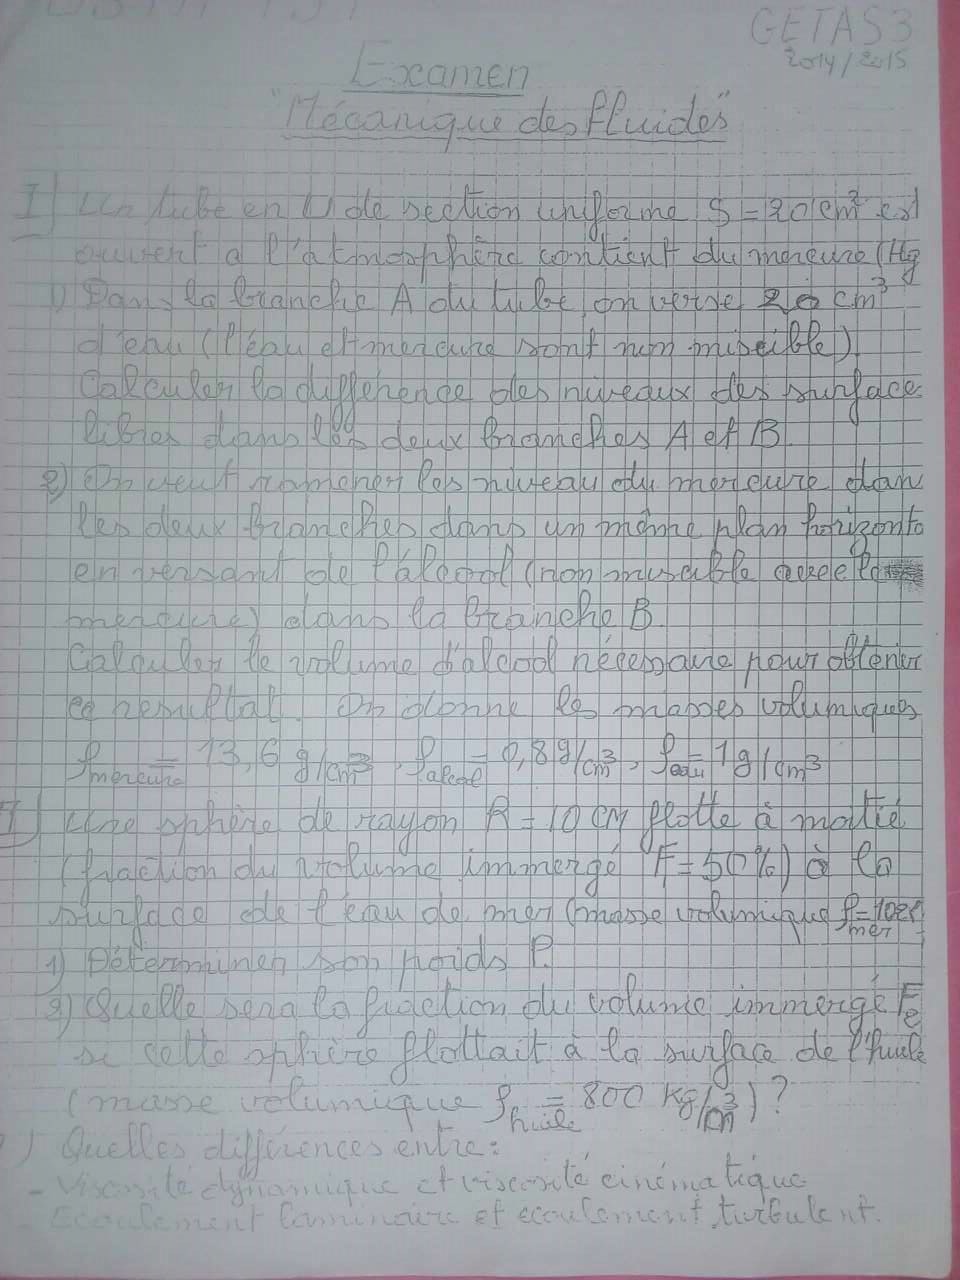 GETAS3
2014/2015
Examen
"Mécanique des fluides"
I) Un tube en U de section uniforme S = 20 cm² est
ouvert a l'atmosphère contient du mercure (Hg
1) Dans la branche A du tube, on verse 20 cm³
d'eau (l'éau et mercure sont non miscible)
Calculer la différence des niveaux des surface
libres dans les deux branches A et B
2) On veut ramener les niveau du mercure dan
les deux branches dans un même plan horizonta
en versant de l'alcool (non miscible avec le
mercure) dans la branche B.
Calculer le volume d'alcool nécessaire pour obtenir
ce resultat. On donne les masses volumiques
ρmercure = 13,6 g/cm³, ρalcol = 0,8 g/cm³, ρeau = 1g/cm³
I) Une sphère de rayon R = 10 cm flotte à moitié
(fraction du volume immergé F = 50%) à la
surface de l'éau de mer (masse volumique ρmer =
1) Déterminer son poids P.
2) Quelle sera la fraction du volume immergé Fe
si cette sphère flottait à la surface de l'huile
(masse volumique ρhuile = 800 kg/cm³)?
) Quelles différences entre:
- Viscosité dynamique et viscosité cinématique
- Ecoulement laminaire et ecoulement turbulent.